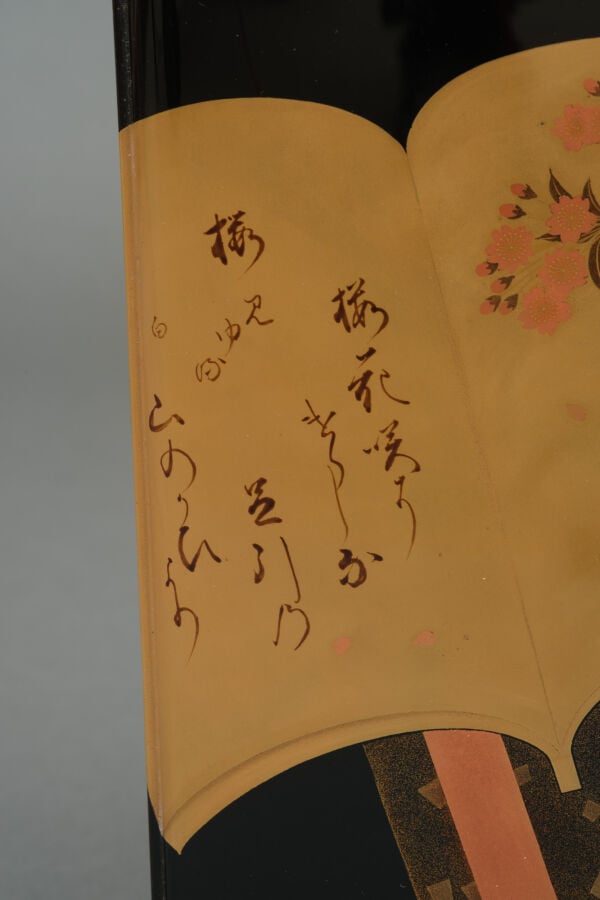 櫻花咲に
けらしな
足引乃
山のかひより
櫻
見ゆる
白